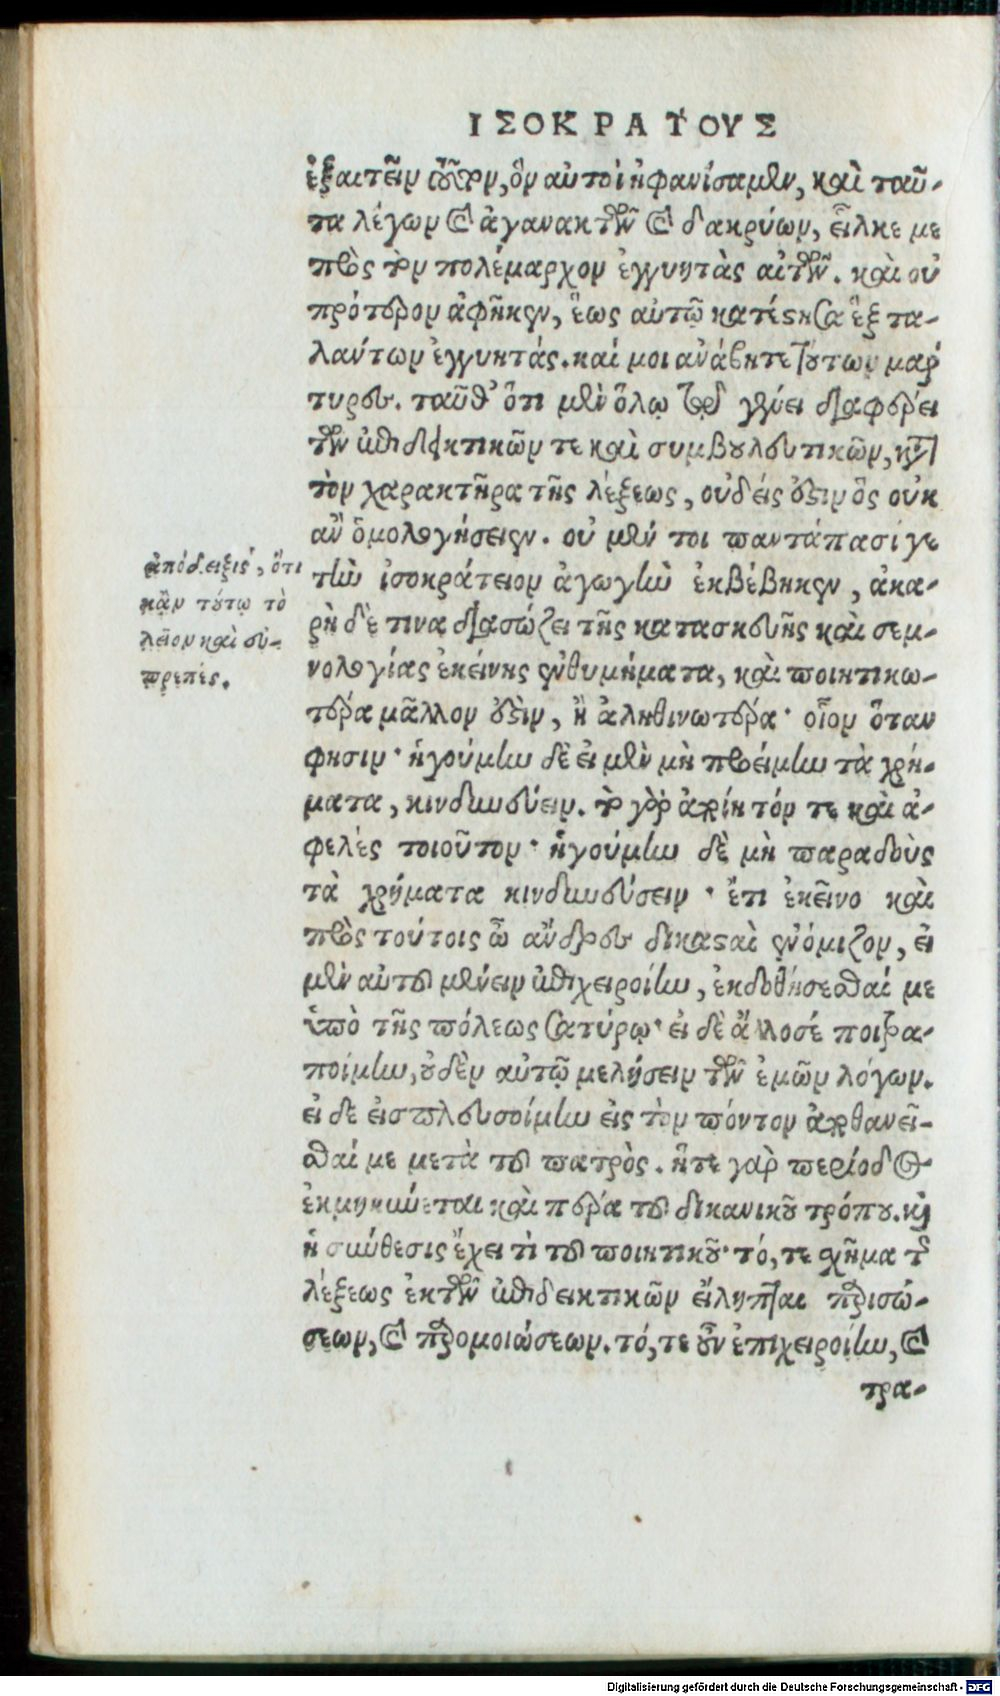 ΙΣΟΚΡΑΤΟΥΣ
ἐξαιτεῖν τοῦτον, ὃν αὐτοὶ ἠφανίσαμεν, καὶ ταῦ-
τα λέγων καὶ ἀγανακτῶν καὶ δακρύων, εἷλκέ με
πρὸς τὸν πολέμαρχον ἐγγυητὰς αἰτῶν. καὶ οὐ
πρότερον ἀφῆκεν, ἕως αὐτῷ κατέστησα ἓξ τα-
λάντων ἐγγυητάς. καί μοι ἀνάβητε τούτων μάρ
τυρες. ταῦθ' ὅτι μὲν ὅλῳ τῷ γένει διαφέρει
τῶν ἐπιδεικτικῶν τε καὶ συμβουλευτικῶν, κατὰ
τὸν χαρακτῆρα τῆς λέξεως, οὐδείς ἐστιν ὃς οὐκ
ἂν ὁμολογήσειεν. οὐ μέν τοι παντάπασί γε
τὴν ἰσοκράτειον ἀγωγὴν ἐκβέβηκεν, ἀκα-
ρῆ δέ τινα διασώζει τῆς κατασκευῆς καὶ σεμ-
νολογίας ἐκείνης ἐνθυμήματα, καὶ ποιητικω-
τέρα μᾶλλον ἐστὶν, ἢ ἀληθινωτέρα· οἷον ὅταν
φησιν· ἡγούμην δὲ εἰ μὲν μὴ προείμην τὰ χρή-
ματα, κινδυνεύειν. τὸ γὰρ ἀφίητόν τε καὶ ἀ-
φελὲς τοιοῦτον· ἡγούμην δὲ μὴ παραδοὺς
τὰ χρήματα κινδυνεύσειν· ἔτι ἐκεῖνο καὶ
πρὸς τούτοις ὦ ἄνδρες δικασταὶ ἐνόμιζον, εἰ
μὲν αὐτοῦ μένειν ἐπιχειροίην, ἐκδοθήσεσθαί με
ὑπὸ τῆς πόλεως Σατύρῳ· εἰ δὲ ἄλλοσέ ποι τρα-
ποίμην, οὐδὲν αὐτῷ μελήσειν τῶν ἐμῶν λόγων.
εἰ δὲ εἰσπλευσοίμην εἰς τὸν πόντον ἀποθανεῖ-
σθαί με μετὰ τοῦ πατρός. ἥτε γὰρ περίοδος
ἐκμηκύνεται καὶ πέρα τοῦ δικανικοῦ τρόπου. καὶ
ἡ σύνθεσις ἔχει τὶ τοῦ ποιητικοῦ· τό, τε σχῆμα τῆς
λέξεως ἐκ τῶν ἐπιδεικτικῶν εἴληπται παρισώ-
σεων, καὶ παρομοιώσεων. τό, τε οὖν ἐπιχειροίην, καὶ
τρα-
ἀπόδειξις, ὅτι
κἂν τούτῳ τὸ
λεῖον καὶ εὐ-
πρεπές.
Digitalisierung gefördert durch die Deutsche Forschungsgemeinschaft - DFG